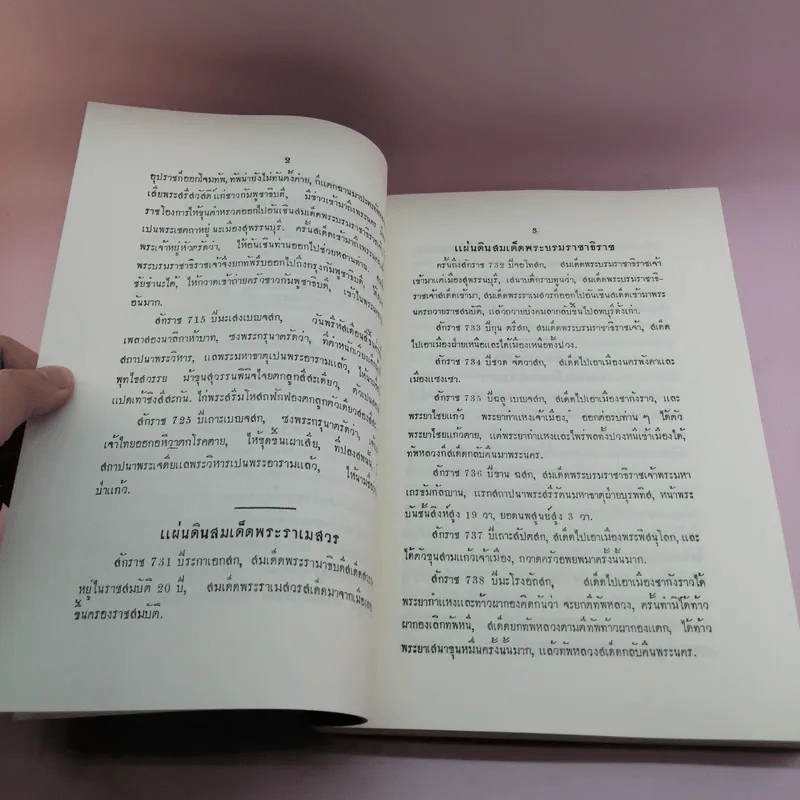 2
อุปราชก็ออกโจมทัพ, ทัพน่ายังไม่ทันตั้งค่าย, ก็แตกฉานมาปะทะ
เสียพระสรีสวัสดิ์แก่ชาวกัมพูชาธิบดี, มีข่าวเข้ามาถึงพระนคร
ราชโองการให้ขุนตำหรวดออกไปอันเชินสมเด็ดพระบรมราชาธิราช
เปนพระเชตถาหยู่ ณะเมืองสุพรรนบุรี. ครั้นสเด็ดเข้ามาถึงพระนคร
พระเจ้าหยู่หัวตรัดว่า, ให้อันเชินท่านออกไปช่วยหลานท่าน.
พระบรมราชาธิราชเจ้าจึงยกทัพรีบออกไปถึงกรุงกัมพูชาธิบดี,
ชัยชำนะได้, ให้กวาดเข้าถ่ายครัวชาวกัมพูชาธิบดี, เข้าในพระนคร
อันมาก.
สักราช 715 ปีมะเส็งเบญจสก, วันพรึหัสเดือน
เพลาสองนาลิกาห้าบาท, ซงพระกรุนาตรัดว่า, ที่ตำหนักเวียงเหล็ก
สถาปนาพระวิหาร, แลพระมหาธาตุเปนพระอารามแล้ว, ให้นาม
พุทไธสวรรย ม้าขุนสุวรรนพินิจใจยตกลูกสีสะเดียว, ตัวเปนสอง
แปดเท้าชิงสีสะกัน. ไก่พระสรีมโหสถฟักฟองตกลูกตัวเดียวสองสีสะ
สักราช 725 ปีเถาะเบญจสก, ซงพระกรุนาตรัดว่า,
เจ้าไทยออกอหิวาตกโรคตาย, ให้ขุดขึ้นเผาเสีย, ที่ปลงสพนั้น,
สถาปนาพระเจดีย์แลพระวิหารเปนพระอารามแล้ว, ให้นามชื่อ
ป่าแก้ว.
แผ่นดินสมเด็ดพระราเมสวร
สักราช 731 ปีระกาเอกสก, สมเด็ดพระรามาธิบดีสเด็ด
หยู่ในราชสมบัติ 20 ปี, สมเด็ดพระราเมสวรสเด็ดมาจากเมือง
ขึ้นครองราชสมบัติ.
3
แผ่นดินสมเด็ดพระบรมราชาธิราช
ครั้นถึงสักราช 732 ปีจอโทสก, สมเด็ดพระบรมราชาธิราชเจ้า
เข้ามาแต่เมืองสุพรรนบุรี, เสนาบดีกราบทูนว่า, สมเด็ดพระบรมราชาธิ-
ราชเจ้าสเด็ดเข้ามา, สมเด็ดพระราเมสวรก็ออกไปอันเชินสเด็ดเข้ามาพระ
นครถวายราชสมบัติ, แล้วถวายบังคมลากลับขึ้นไปลพบุรีดั่งเก่า.
สักราช 733 ปีกุน ตรีสก, สมเด็ดพระบรมราชาธิราชเจ้า, สเด็ด
ไปเอาเมืองฝ่ายเหนือและได้เมืองเหนือทั้งปวง.
สักราช 734 ปีชวด จัตวาสก, สเด็ดไปเอาเมืองนครพังคาและ
เมืองแซงเซา.
สักราช 735 ปีฉลู เบญจสก, สเด็ดไปเอาเมืองชากังราว, และ
พระยาไซยแก้ว พระยากำแหงเจ้าเมือง, ออกต่อรบท่าน ๆ ได้ตัว
พระยาไซยแก้วตาย, แต่พระยากำแหงและไพร่พลทั้งปวงหนีเข้าเมืองได้,
ทัพหลวงก็สเด็ดกลับคืนมาพระนคร.
สักราช 736 ปีขาน ฉสก, สมเด็ดพระบรมราชาธิราชเจ้าพระมหา
เถรธัมกัลยาน, แรกสถาปนาพระสรีรัตนมหาธาตุฝ่ายบุรพทิส, หน้าพระ
บันชั้นสิงห์สูง 19 วา, ยอดนพสูนย์สูง 3 วา.
สักราช 737 ปีเถาะสัปตสก, สเด็ดไปเอาเมืองพระพิสนุโลก, และ
ได้ตัวขุนสามแก้วเจ้าเมือง, กวาดครัวอพยพมาครั้งนั้นมาก.
สักราช 738 ปีมะโรงอัถสก, สเด็ดไปเอาเมืองชากังราวได้
พระยากำแหงและท้าวผากองคิดกันว่า จะยกตีทัพหลวง, ครั้นทำมิได้ท้าว
ผากองเลิกทัพหนี, สเด็ดยกทัพหลวงตามตีทัพท้าวผากองแตก, ได้ท้าว
พระยาเสนาขุนหมื่นครั้งนั้นมาก, แล้วทัพหลวงสเด็ดกลับคืนพระนคร.